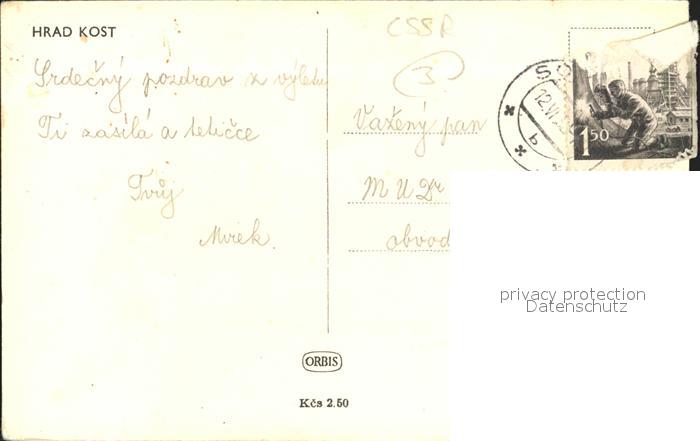 HRAD KOST
Srdečný pozdrav z výletu
Ti zasílá a tetičce
Tvůj
Mirek.
ČSSR
3
Vážený pan
MUDr
obvod
12.VI
b
1 50
privacy protection
Datenschutz
ORBIS
Kčs 2.50